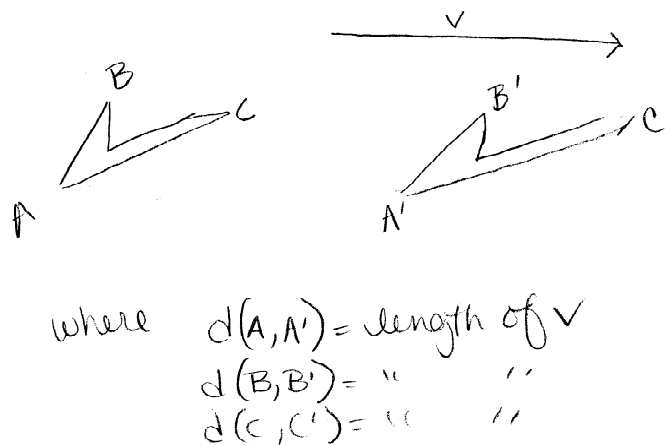 V
B
C
B'
C
A
A'
where d(A,A') = length of V
d(B,B') = " "
d(C,C') = " "